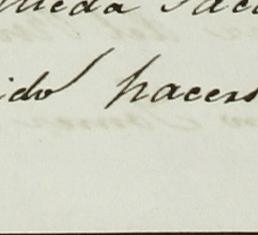 ueda sac
ido hacers